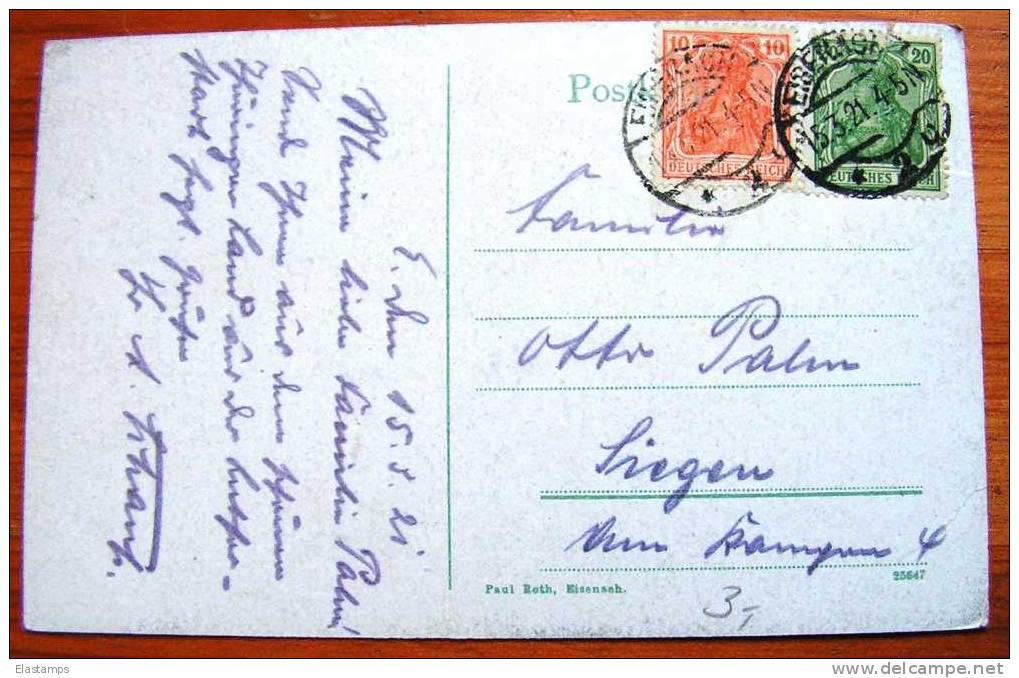 E. den 15.3.21
Meine liebe Familie Palm!
Send Ihnen aus dem schönen
Thüringer Land aus der Luther-
stadt herzl. Grüße
Postk
10 10
DEUTSCHES REICH
20
DEUTSCHES REICH
EISENACH
15.3.21. 4-5N
* 2
Familie
Otto Palm
Siegen
Am
25647
Paul Roth, Eisenach.
3,-
Elastamps
www.delcampe.net